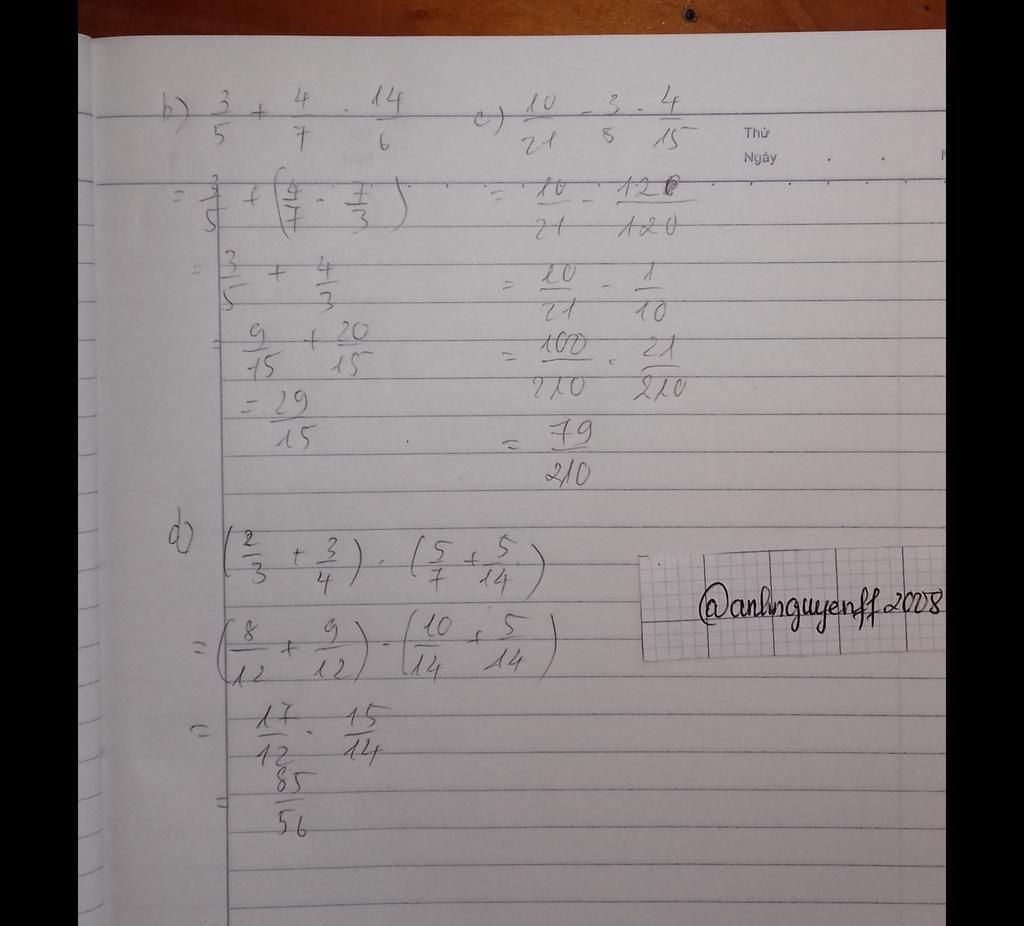 b) 3/5 + 4/7 . 14/6
= 3/5 + (4/7 . 7/3)
= 3/5 + 4/3
= 9/15 + 20/15
= 29/15
c) 10/21 - 3/8 . 4/15
= 10/21 - 12/120
= 10/21 - 1/10
= 100/210 - 21/210
= 79/210
Thứ
Ngày
d) (2/3 + 3/4) . (5/7 + 5/14)
= (8/12 + 9/12) . (10/14 + 5/14)
= 17/12 . 15/14
= 85/56
@anhnguyenff.2008